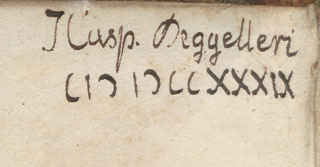 J Casp. Deggelleri
CIƆ IƆ CC XXXIX